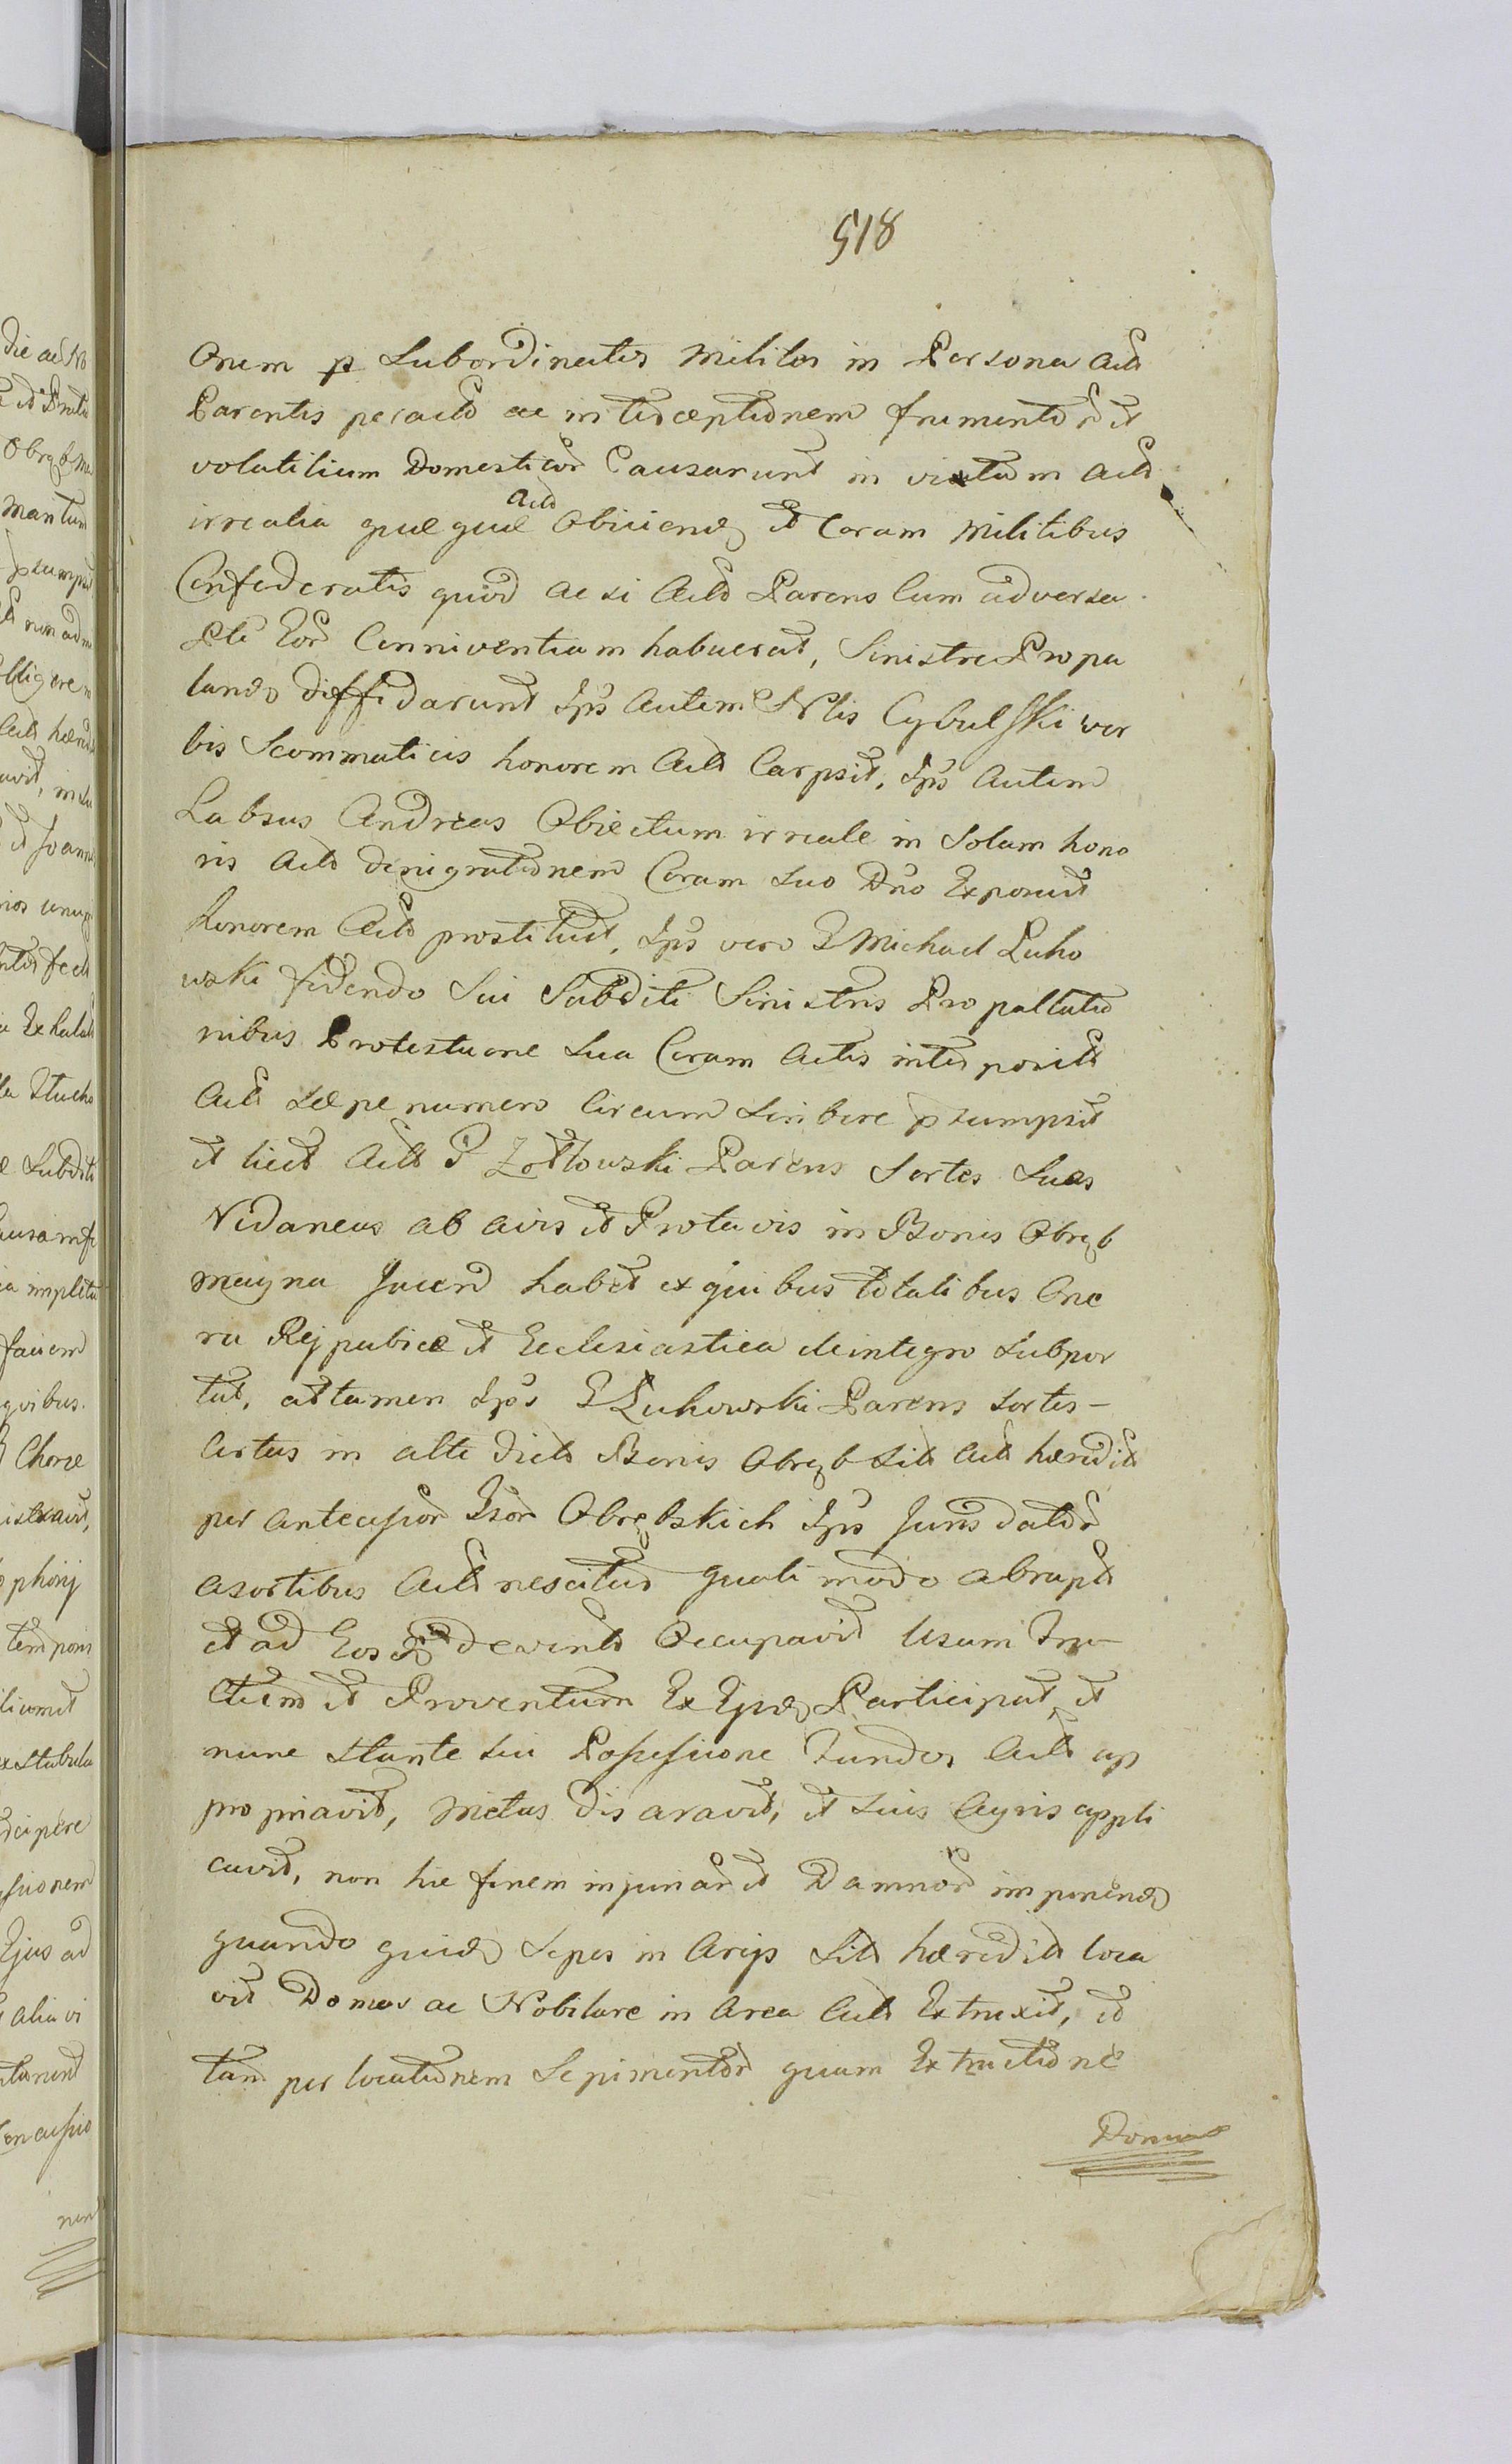 518
Onem p Subordinatos milites in Persona Actd
Parentis peractd ac interceptionem frumentor et
volatilium Domesticor Causarunt in victum Actd
irrealia quæquæ Actd Obiiciend et Coram Militibus
Confederatis quod ac si Actd Parens Cum adversa
Pte Eor Conniventiam habuerat, Sinistre Propa
lando diffidarunt Ips Autem Nblis Cybulski ver
bis Scommaticis honorem Actd Carpsit, Ips Autem
Labsus Andreas Obiectum irreale in Solam hono
ris Actd denigrationem Coram Suo Dno Exposuit
honorem Actd prostituit, Ips vero G Michael Luho
wski fidendo Sui Subditi Sinistris Propallatio
nibus Protestatione Sua Coram Actis interposita
Actd Sæpenumero Circumscribere præsumpsit
et licet Actd G Zołtowski Parens Sortes Suas
Nidaneas ab avis et Protavis in Bonis Obręb
magna Jacend habet ex quibus totalibus One
ra Rejpubicæ et Ecclesiastica deintegro Subpor
tat, attamen Ips G Łuhowski Parens Sortes-
Certas in alte dictd Bonis Obręb Sitd Actd hæredit
per antecessor Gsor Obrębskich Ips Juris dator
asortibus Actd nescitur quali modo abrupt
et ad Eos devent Occupavit Usum Fru-
ctum et Proventum Ex Ejsd Participat, et
nunc Stante Sui Possessione Fundos Actd ap
propriavit, Metas disaravit, et Suis Agris appli
cavit, non hic finem injuriar et Damnor imponend
quando quid Sepes in Areis Sitd hæredit loca
vit Domos ac Nobilare in Area Actd Extruxit, et
tam per locationem Sepimentor quam Extructione
Domus